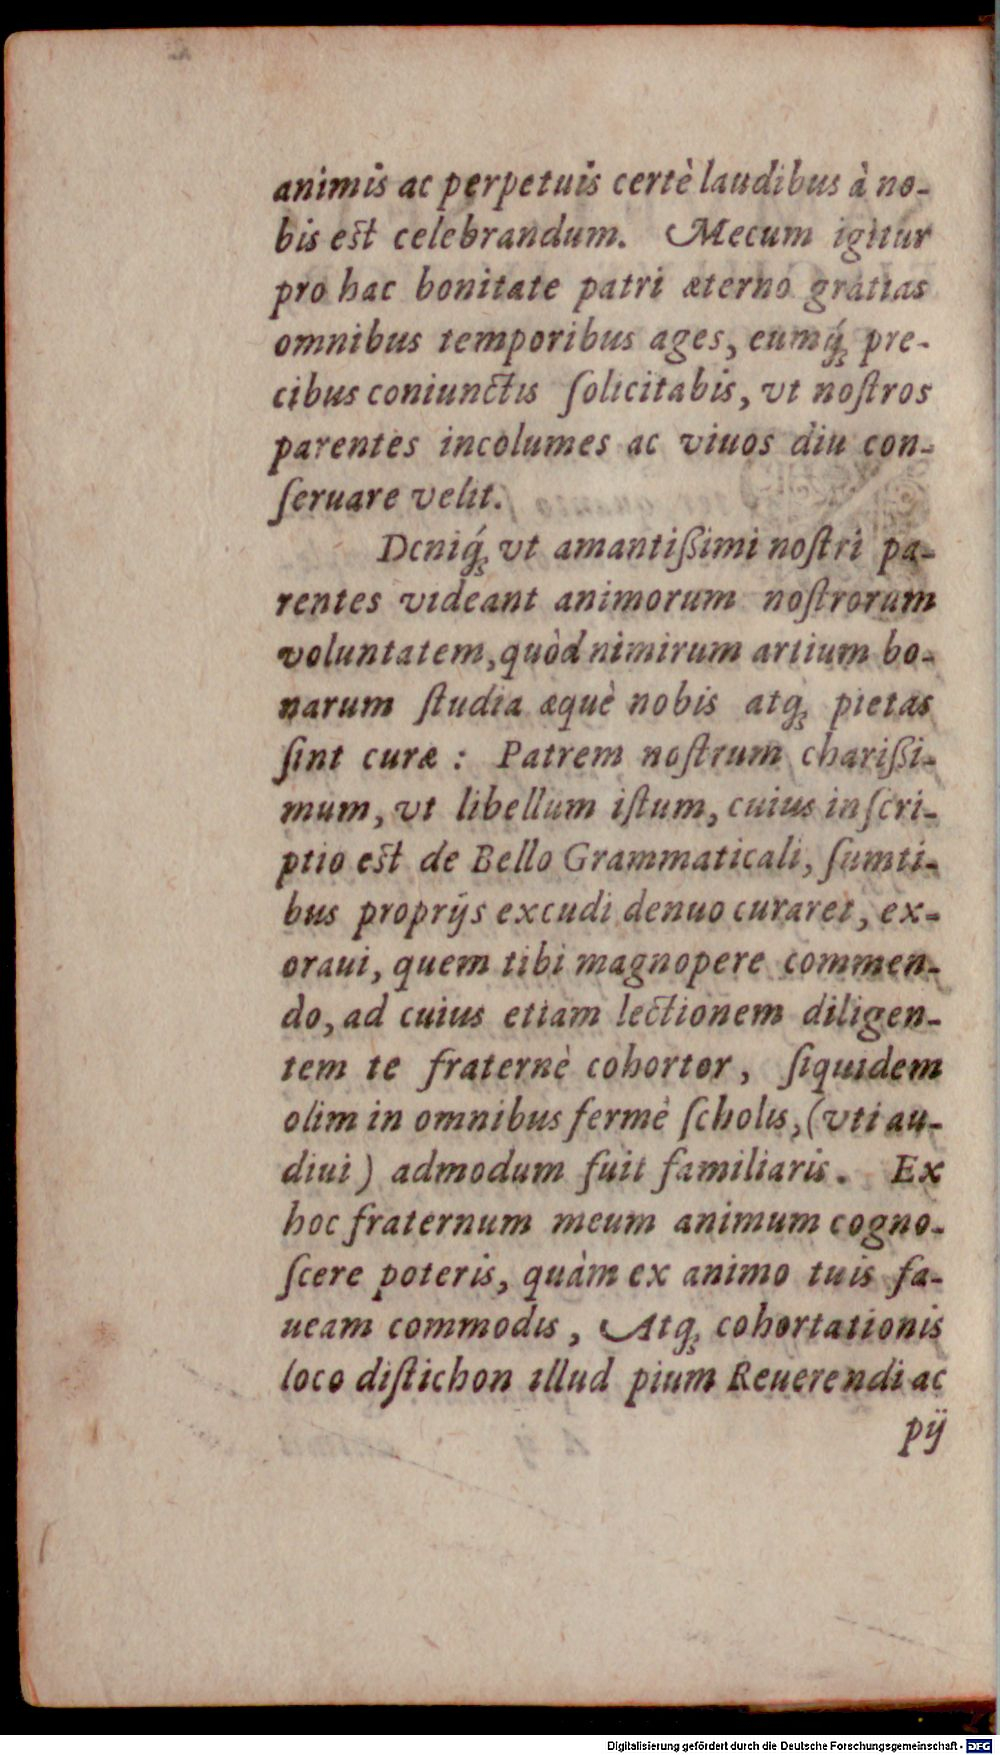 animis ac perpetuis certè laudibus à no-
bis est celebrandum. Mecum igitur
pro hac bonitate patri æterno gratias
omnibus temporibus ages, eumq́ꝫ pre-
cibus coniunctis ſolicitabis, vt noſtros
parentes incolumes ac viuos diu con-
ſeruare velit.
Deniq́ꝫ vt amantißimi noſtri pa-
rentes videant animorum noſtrorum
voluntatem, quòd nimirum artium bo-
narum ſtudia æquè nobis atqꝫ pietas
ſint curæ : Patrem noſtrum charißi-
mum, vt libellum iſtum, cuius inſcri-
ptio est de Bello Grammaticali, ſumti-
bus proprijs excudi denuo curaret, ex-
oraui, quem tibi magnopere commen-
do, ad cuius etiam lectionem diligen-
tem te fraternè cohortor, ſiquidem
olim in omnibus fermè ſcholis, (vti au-
diui) admodum fuit familiaris. Ex
hoc fraternum meum animum cogno-
ſcere poteris, quàm ex animo tuis fa-
ueam commodis, Atqꝫ cohortationis
loco diſtichon illud pium Reuerendi ac
pij
Digitalisierung gefördert durch die Deutsche Forschungsgemeinschaft - DFG